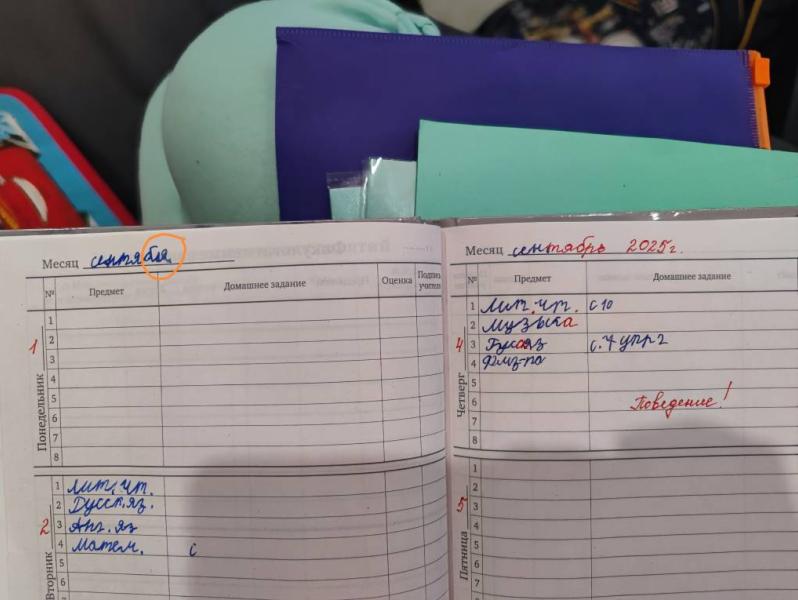 Месяц сентябя
№ Предмет Домашнее задание Оценка Подпись учителя
Понедельник 1
1
2
3
4
5
6
7
8
Вторник 2
1 Лит. чт.
2 Русск. яз.
3 Анг. яз
4 Матем. с
5
6
7
Месяц сентябрь 2025г.
№ Предмет Домашнее задание
Четверг 4
1 Лит. чт. с 10
2 Музыка
3 Русс яз с. 7 упр 2
4 Физ-ра
5
6 Поведение!
7
8
Пятница 5
1
2
3
4
5
6
7